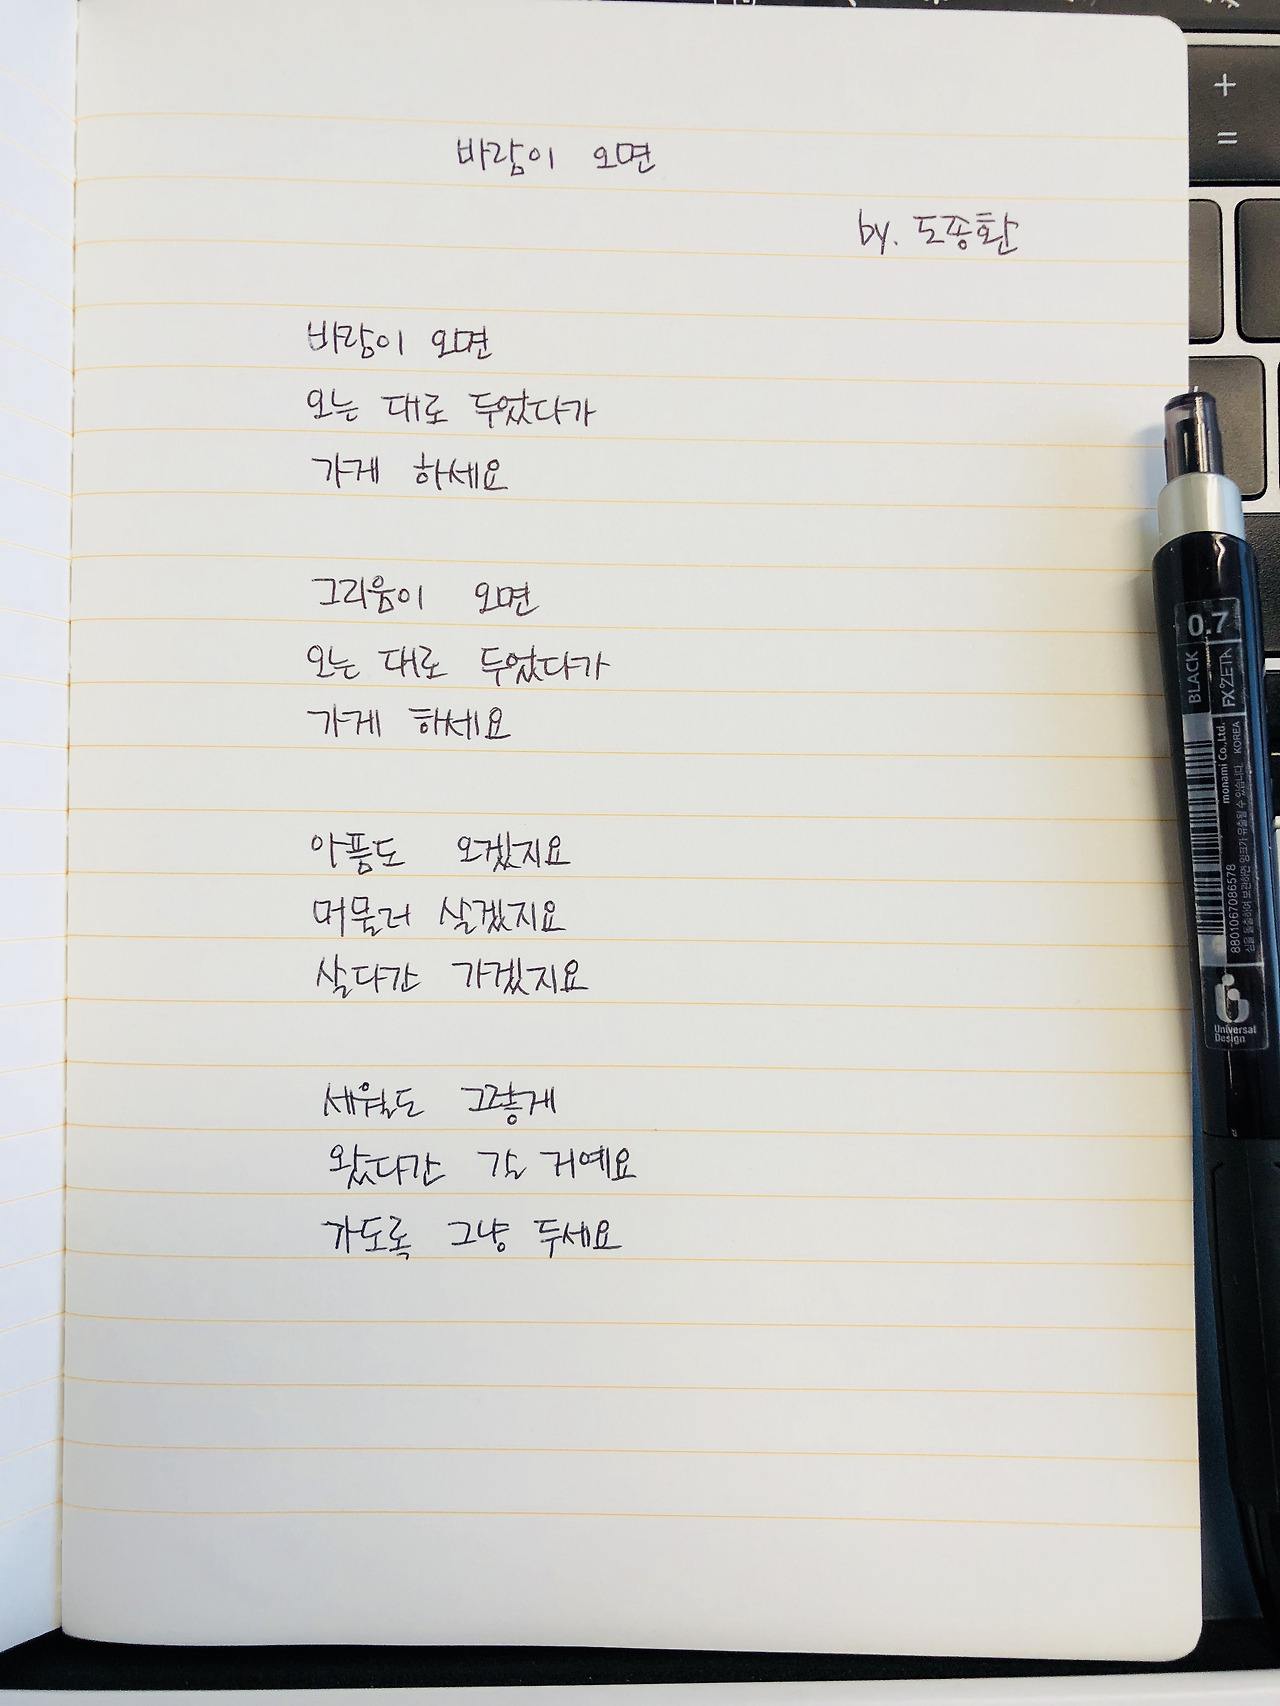 바람이 오면
by. 도종환
바람이 오면
오는 대로 두었다가
가게 하세요
그리움이 오면
오는 대로 두었다가
가게 하세요
아픔도 오겠지요
머물러 살겠지요
살다간 가겠지요
세월도 그렇게
왔다간 갈 거예요
가도록 그냥 두세요
+
=
0.7
BLACK
FX ZETA
monami Co., Ltd. KOREA
8801067086578
Universal
Design